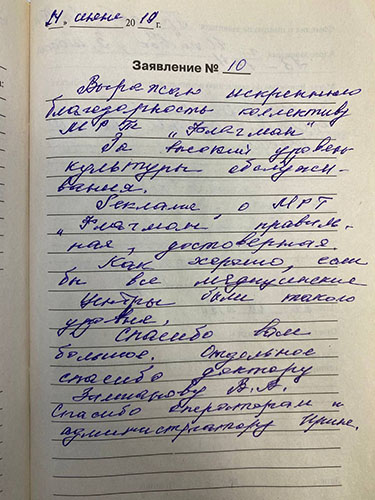 июня 20 г.
Заявление № 10
Выражаю искреннюю
благодарность коллективу
МРТ „Флагман"
За высокий уровень
культуры обслужи-
вания.
Реклама о МРТ
„Флагман" правиль-
ная, достоверная.
Как хорошо, если
бы все медицинские
центры были такого
уровня.
Спасибо вам
большое. Отдельное
спасибо доктору
В.А.
Спасибо операторам и
администратору Ирине.